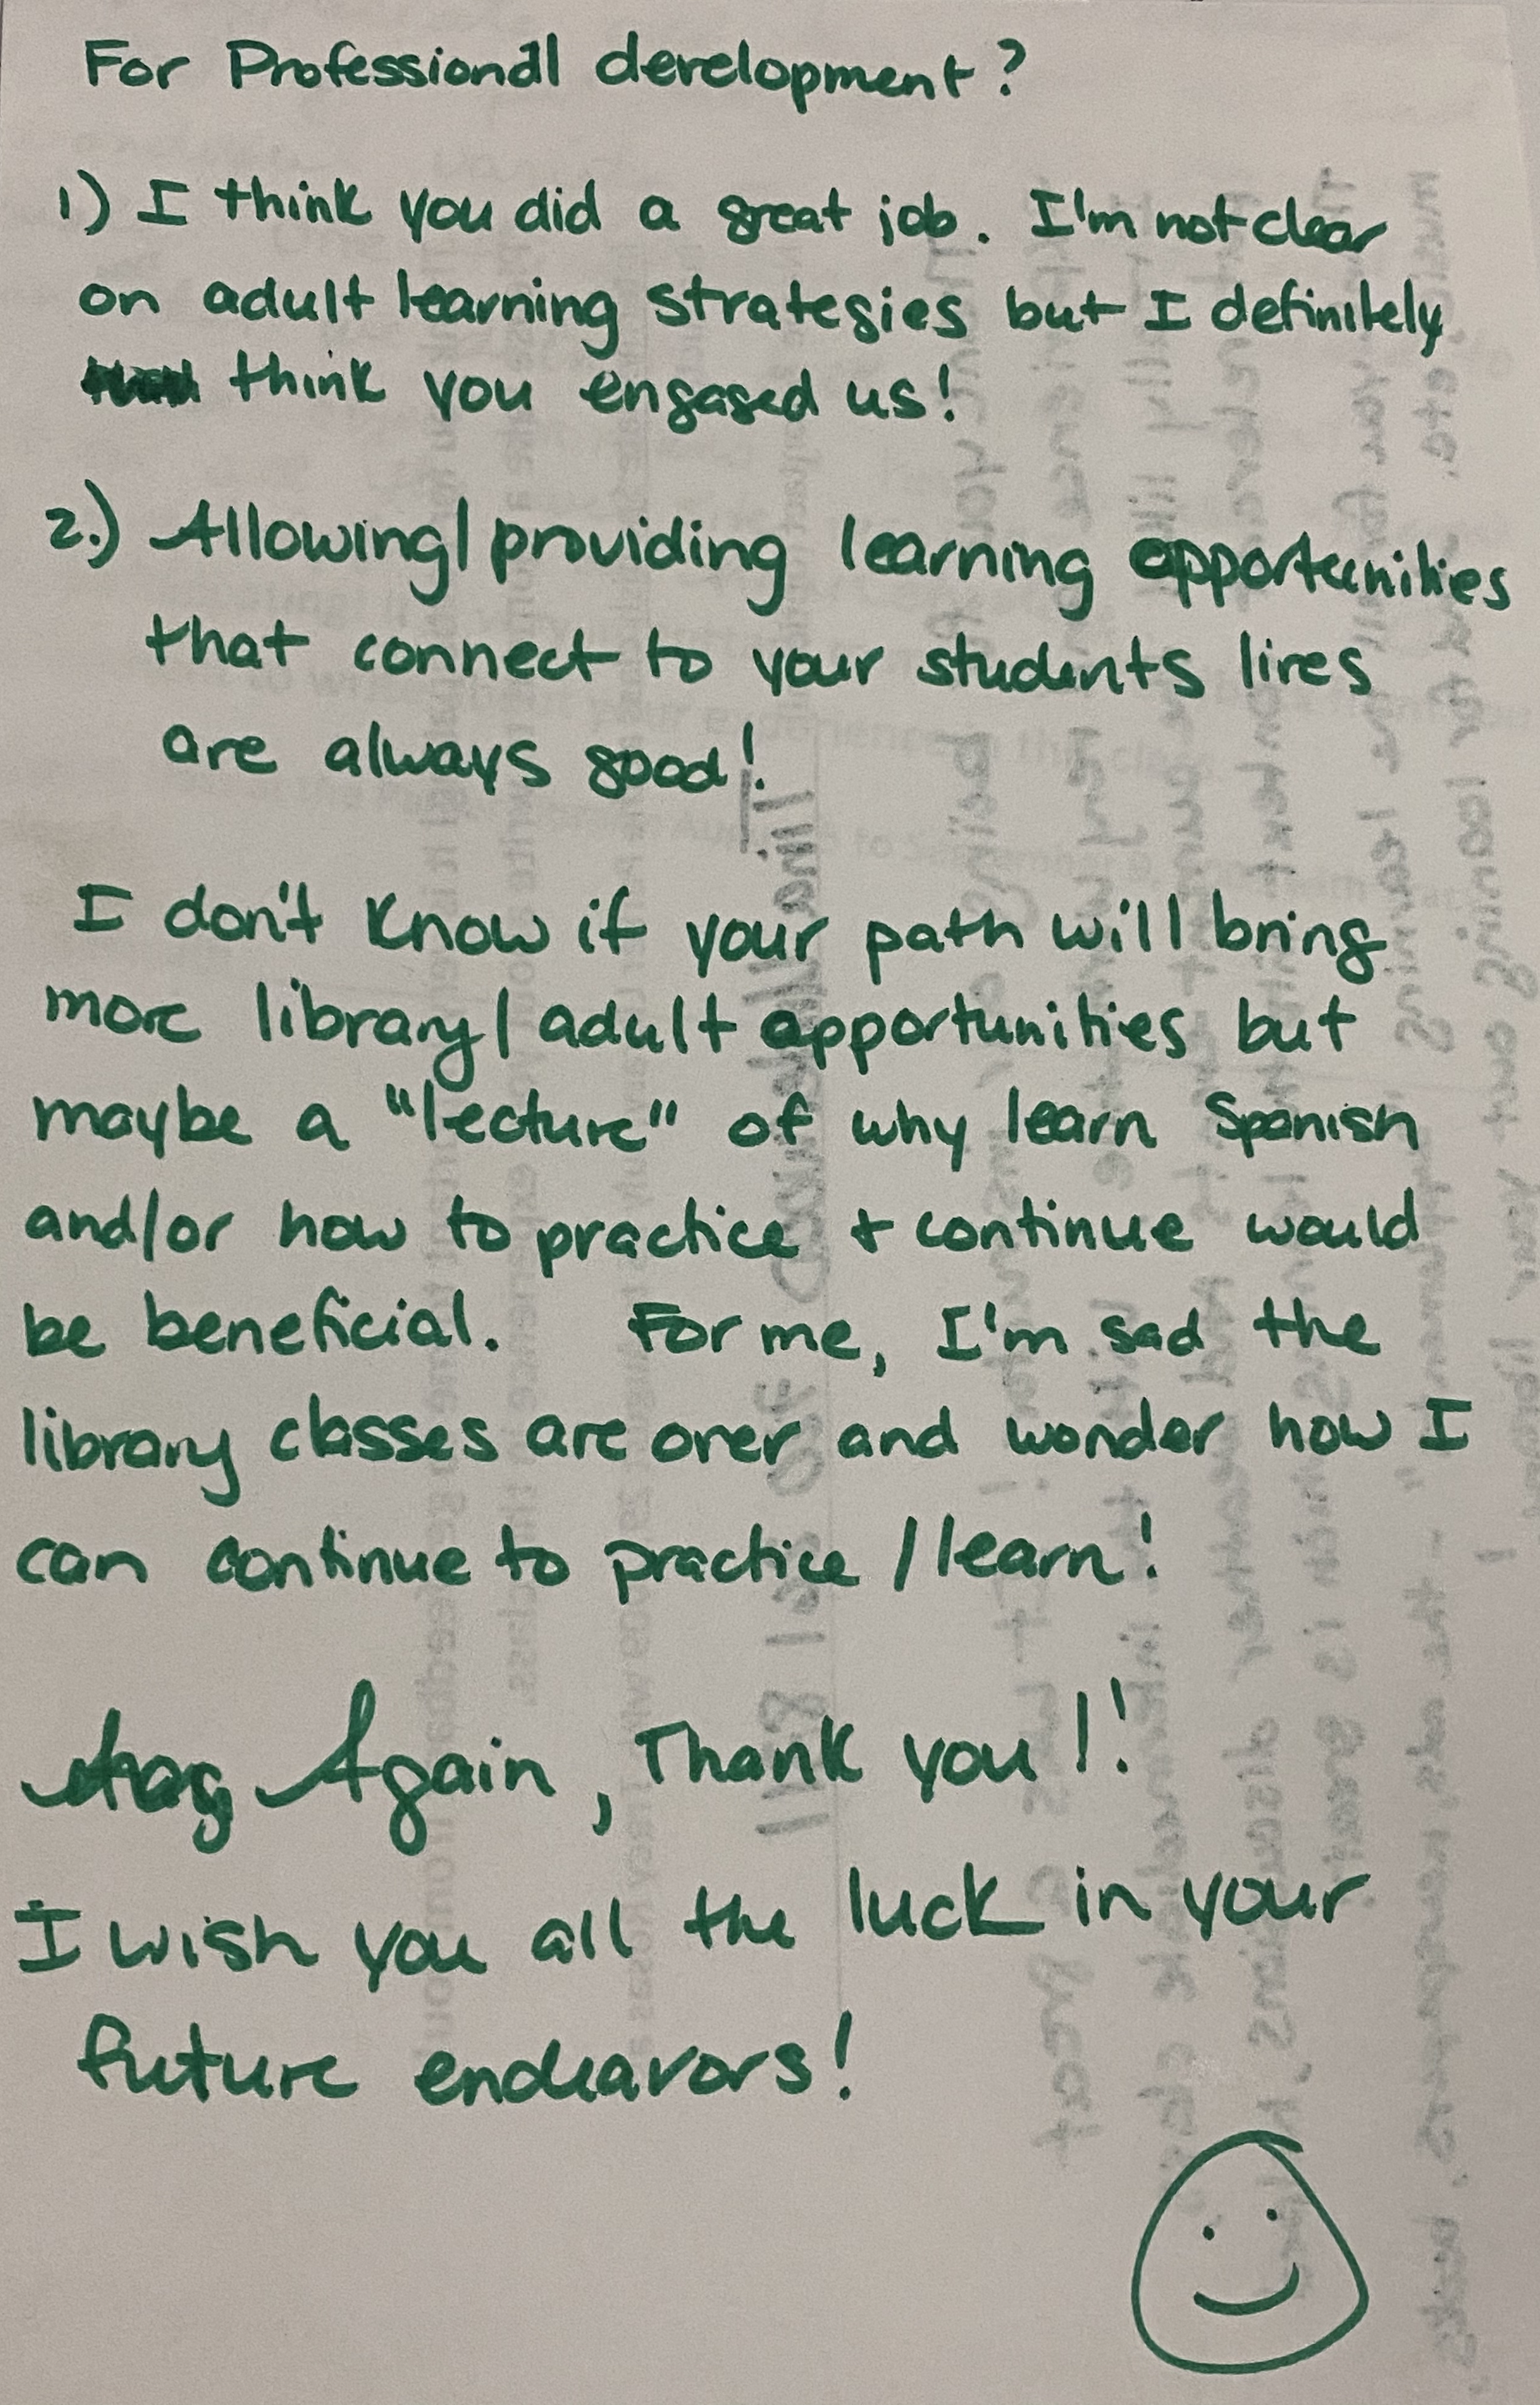 For Professional development?
1) I think you did a great job. I'm not clear
on adult learning strategies but I definitely
think you engaged us!
2.) Allowing/providing learning opportunities
that connect to your students lives
are always good!
I don't know if your path will bring
more library/adult opportunities but
maybe a "lecture" of why learn Spanish
and/or how to practice + continue would
be beneficial. For me, I'm sad the
library classes are over and wonder how I
can continue to practice / learn!
Again, Thank you!!
I wish you all the luck in your
future endeavors!